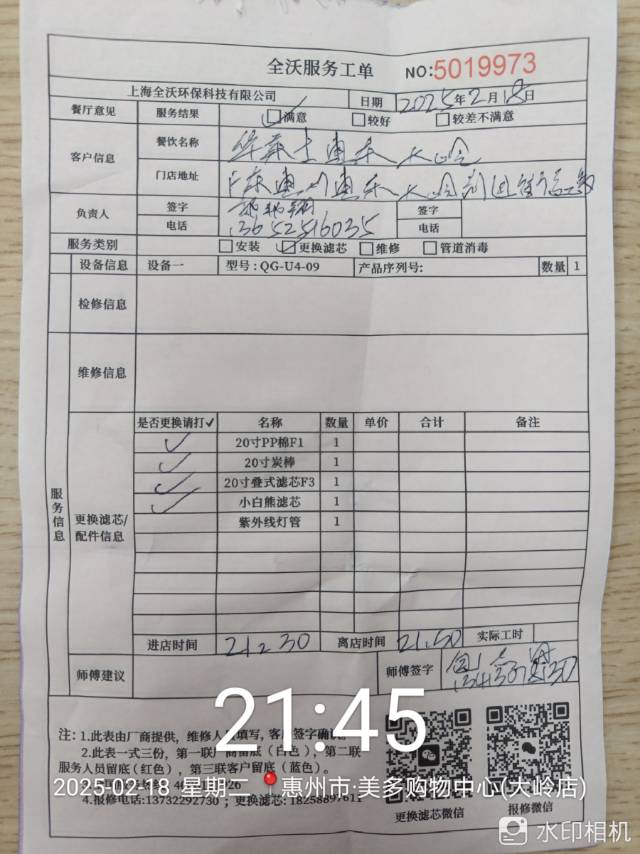 全沃服务工单 NO:5019973
上海全沃环保科技有限公司 日期 2025年2月18日
餐厅意见 服务结果 ☑满意 □较好 □较差不满意
客户信息 餐饮名称 华莱士惠东大岭
门店地址 广东惠州惠东大岭
负责人 签字 签字
电话 13652516035 电话
服务类别 □安装 ☑更换滤芯 □维修 □管道消毒
设备信息 设备一 型号：QG-U4-09 产品序列号: 数量 1
检修信息
维修信息
服务信息
更换滤芯/
配件信息
是否更换请打✓ 名称 数量 单价 合计 备注
✓ 20寸PP棉F1 1
✓ 20寸炭棒 1
✓ 20寸叠式滤芯F3 1
✓ 小白熊滤芯 1
紫外线灯管 1
进店时间 21:30 离店时间 21.50 实际工时
师傅建议 师傅签字
21:45
注：1.此表由厂商提供，维修人员填写，客户签字确认。
2.此表一式三份，第一联厂商留底（白色），第二联
服务人员留底(红色)，第三联客户留底（蓝色）。
2025-02-18 星期二 惠州市·美多购物中心(大岭店)
4.报修电话:13732292730；更换滤芯: 18258897611
更换滤芯微信 报修微信
水印相机